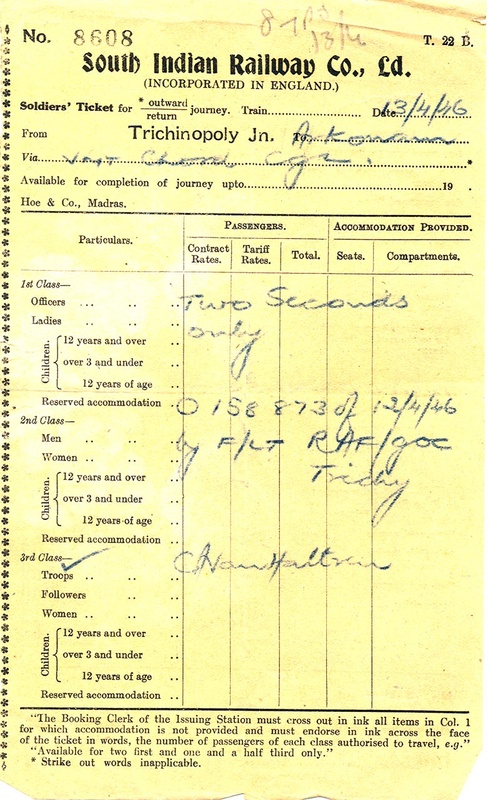 13/4
No. 8608 T. 22 B.
South Indian Railway Co., Ld.
(INCORPORATED IN ENGLAND.)
Soldiers' Ticket for * outward / return journey. Train............ Date 13/4/46
From Trichinopoly Jn. To Arkonam
Via. Chord *
Available for completion of journey upto............19 .
Hoe & Co., Madras.
Particulars. PASSENGERS. ACCOMMODATION PROVIDED.
Contract Rates. Tariff Rates. Total. Seats. Compartments.
1st Class—
Officers ... .. .. Two Seconds
Ladies .. .. .. only
Children. { 12 years and over ..
over 3 and under ..
12 years of age ..
Reserved accommodation .. O 158 873 of 13/4/46
2nd Class—
Men .. .. .. by F/LT RAF/goc
Women .. .. .. Trichy
Children. { 12 years and over ..
over 3 and under ..
12 years of age ..
Reserved accommodation ..
3rd Class—
Troops .. .. ..
Followers .. ..
Women .. .. ..
Children. { 12 years and over ..
over 3 and under ..
12 years of age ..
Reserved accommodation ..
"The Booking Clerk of the Issuing Station must cross out in ink all items in Col. 1
for which accommodation is not provided and must endorse in ink across the face
of the ticket in words, the number of passengers of each class authorised to travel, e.g."
"Available for two first and one and a half third only."
* Strike out words inapplicable.